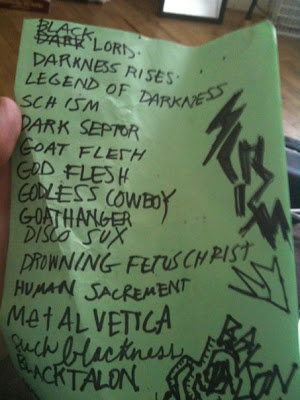 BLACK
DARK LORD.
DARKNESS RISES.
LEGEND OF DARKNESS
SCHISM
DARK SEPTOR
GOAT FLESH
GOD FLESH
GODLESS COWBOY
GOATHANGER
DISCO SUX
DROWNING FETUS CHRIST
HUMAN SACREMENT
MetALVETICA
such blackness
BLACKTALON